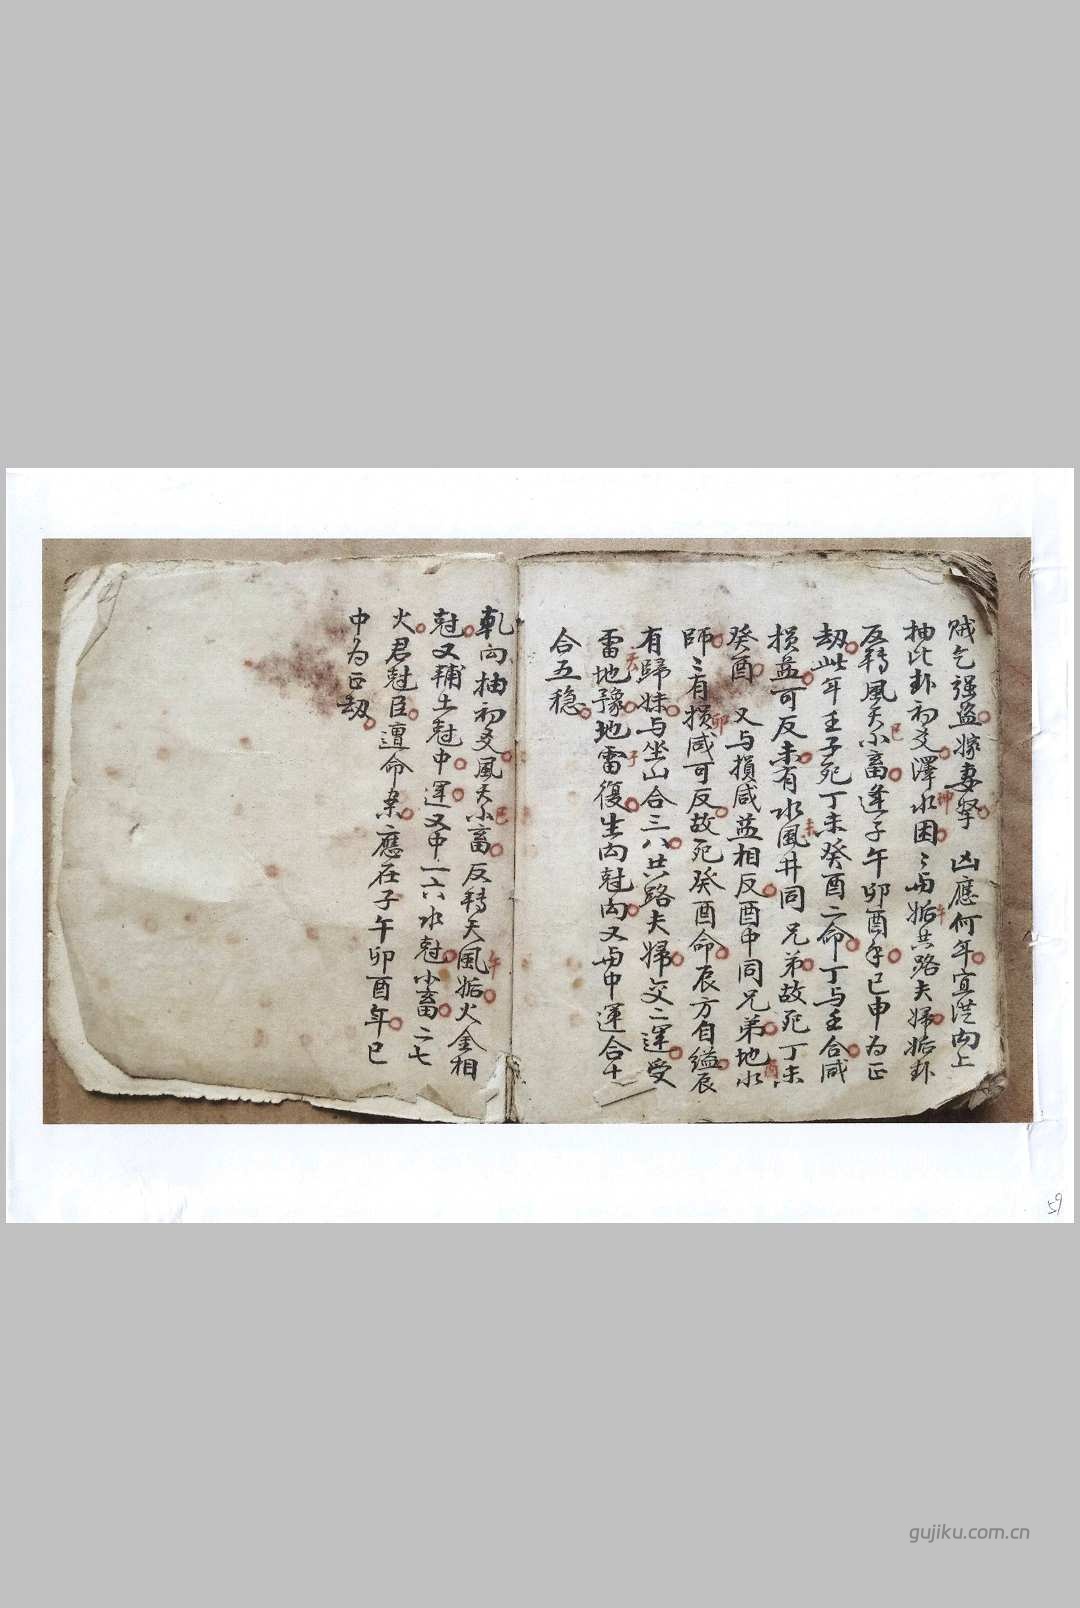 贼乞强盗嫁妻孥　凶應何年宜从向上
抽此卦初爻澤水困〻与姤共路夫婦姤卦
反轉風天小畜逢子午卯酉年巳申为正
劫此年壬子死丁未癸酉二命丁与壬合咸
損益可反未有水風井同兄弟故死丁未
癸酉　又与損咸益相反酉中同兄弟地水
師〻有損咸可反故死癸酉命辰方自缢辰
有歸妹与坐山合三八共路夫婦交二運受
雷地豫地雷復生向尅向又与中運合十
合五穏
乹向抽初爻風天小畜反轉天風姤火金相
尅又輔土尅中運又中一六水尅小畜二七
火君尅臣遭命案應在子午卯酉年巳
中为正劫
巳
坤
午
未
卯
酉
子
巳
午
gujiku.com.cn
59